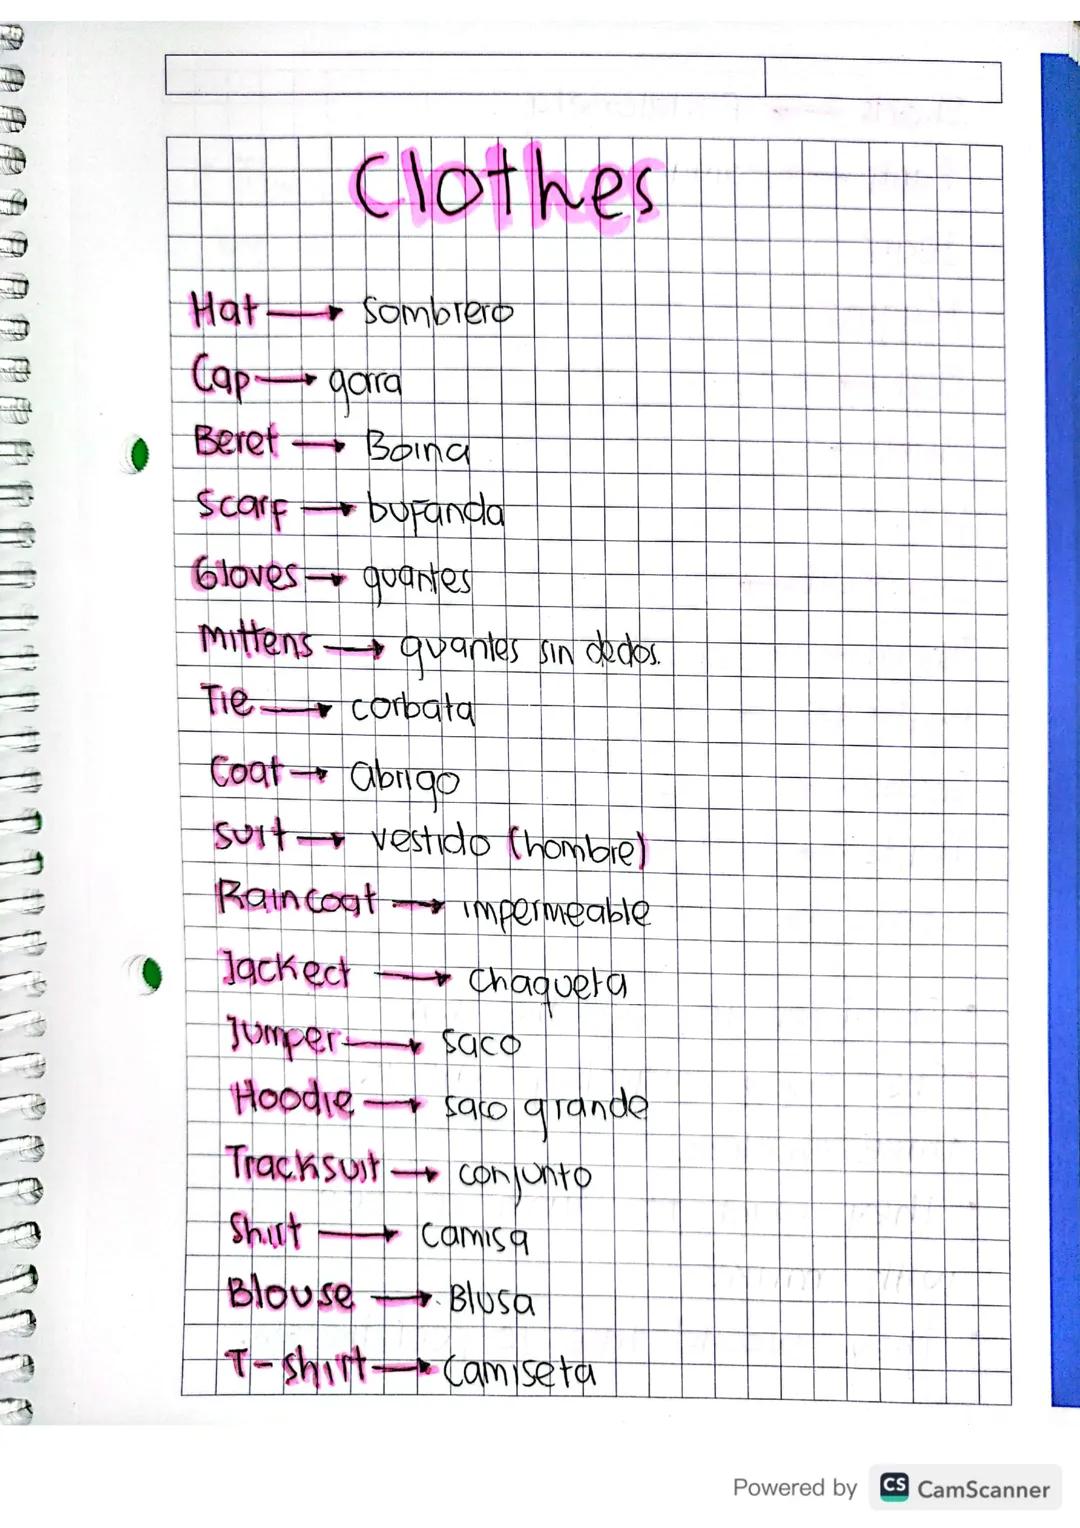 Clothes
Hat → Sombrero
Cap → gorra
Beret → Boina
Scarf → bufanda
Gloves → guantes
Mittens → guantes sin dedos.
Tie → corbata
Coat → abrigo
Suit → vestido (hombre)
Raincoat → impermeable
Jackect → chaqueta
Jumper → saco
Hoodie → saco grande
Tracksuit → conjunto
Shirt → camisa
Blouse → Blusa
T-shirt → camiseta
Powered by CS CamScanner